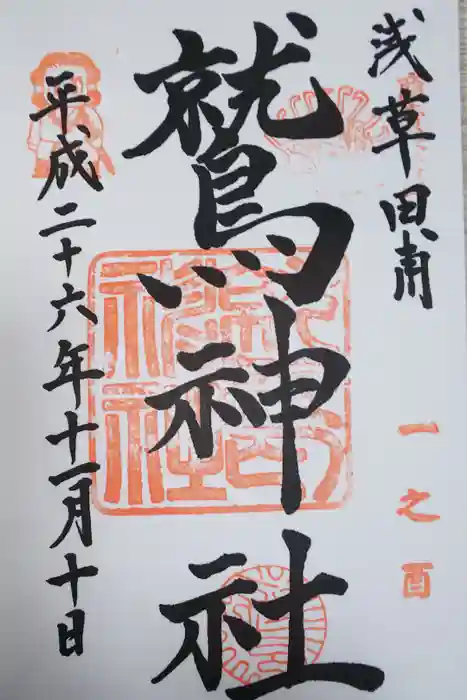 浅草田甫
一之酉
鷲神社
平成二十六年十一月十日